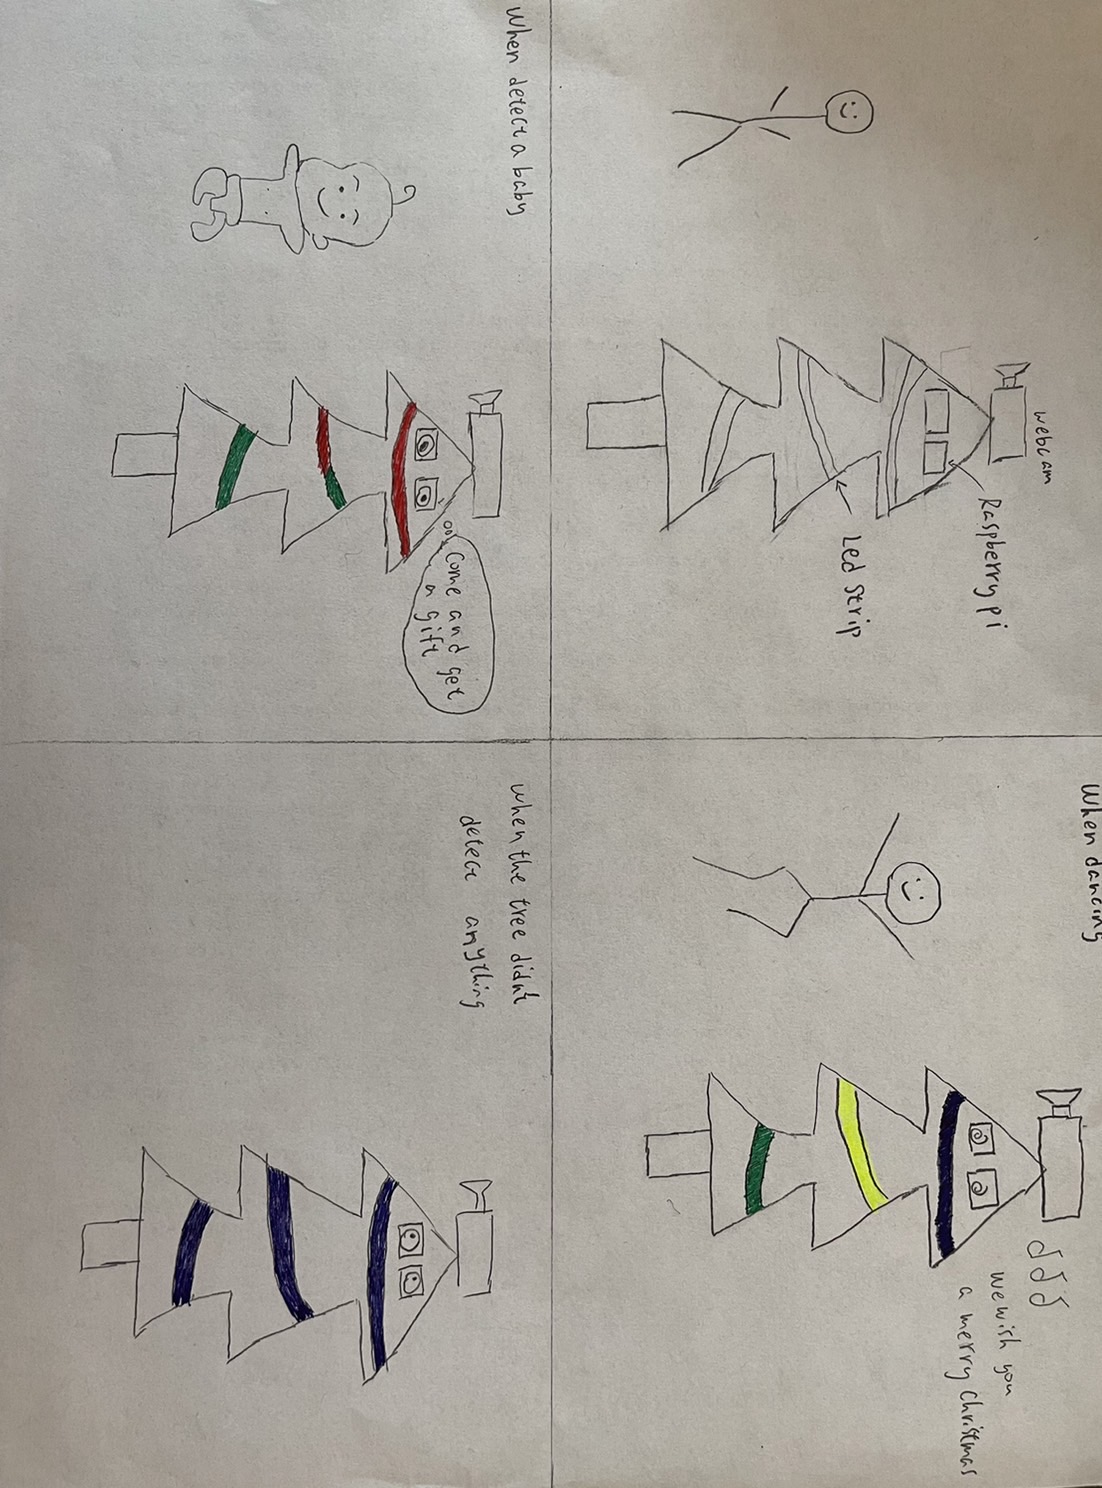 webcam
Raspberry pi
Led strip
When dancing
ddd
we wish you
a merry christmas
When detect a baby
Come and get
a gift
When the tree didn't
detect anything